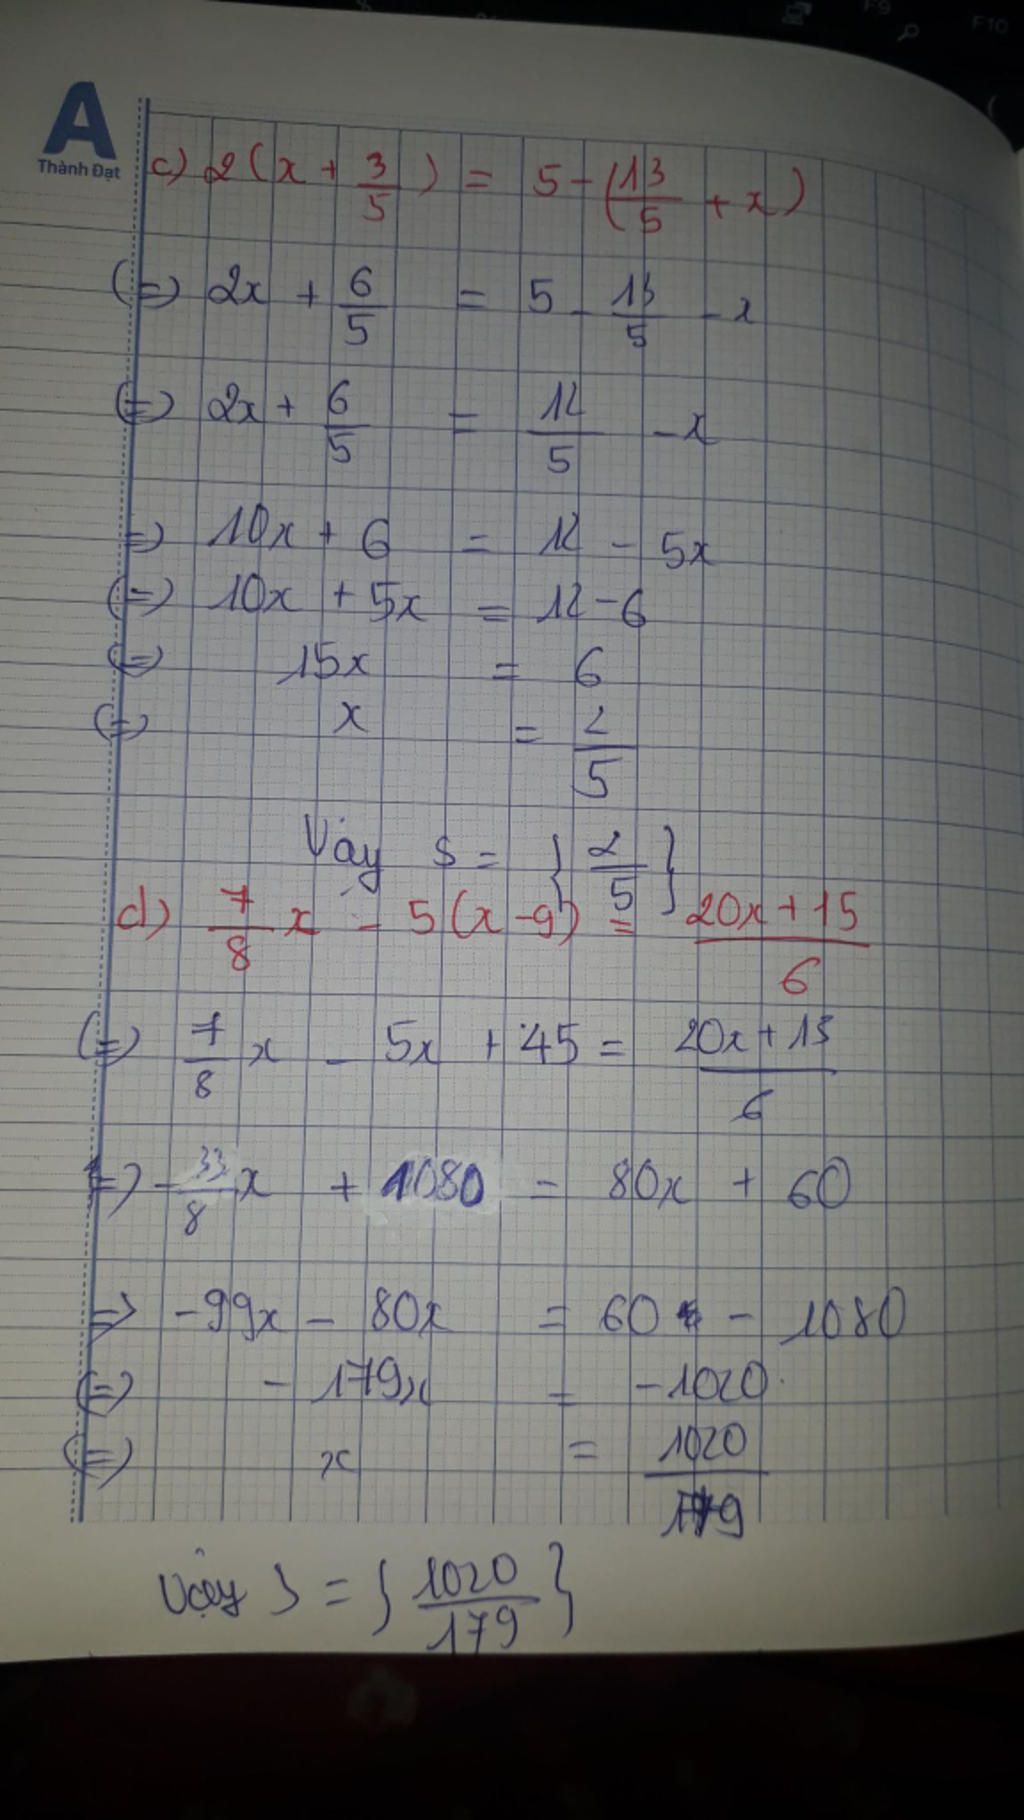 F9
F10
A
Thành Đạt
c) 2(x + 3/5) = 5 - (13/5 + x)
(=) 2x + 6/5 = 5 - 13/5 - x
(=) 2x + 6/5 = 12/5 - x
=) 10x + 6 = 12 - 5x
(=) 10x + 5x = 12 - 6
(=) 15x = 6
(=) x = 2/5
Vậy S = {2/5}
d) 7/8 x - 5(x - 9) = 20x + 15/6
(=) 7/8 x - 5x + 45 = 20x + 15/6
=) -33/8 x + 1080 = 80x + 60
=> -99x - 80x = 60 - 1080
(=) - 179x = -1020
(=) x = 1020/179
Vậy S = {1020/179}